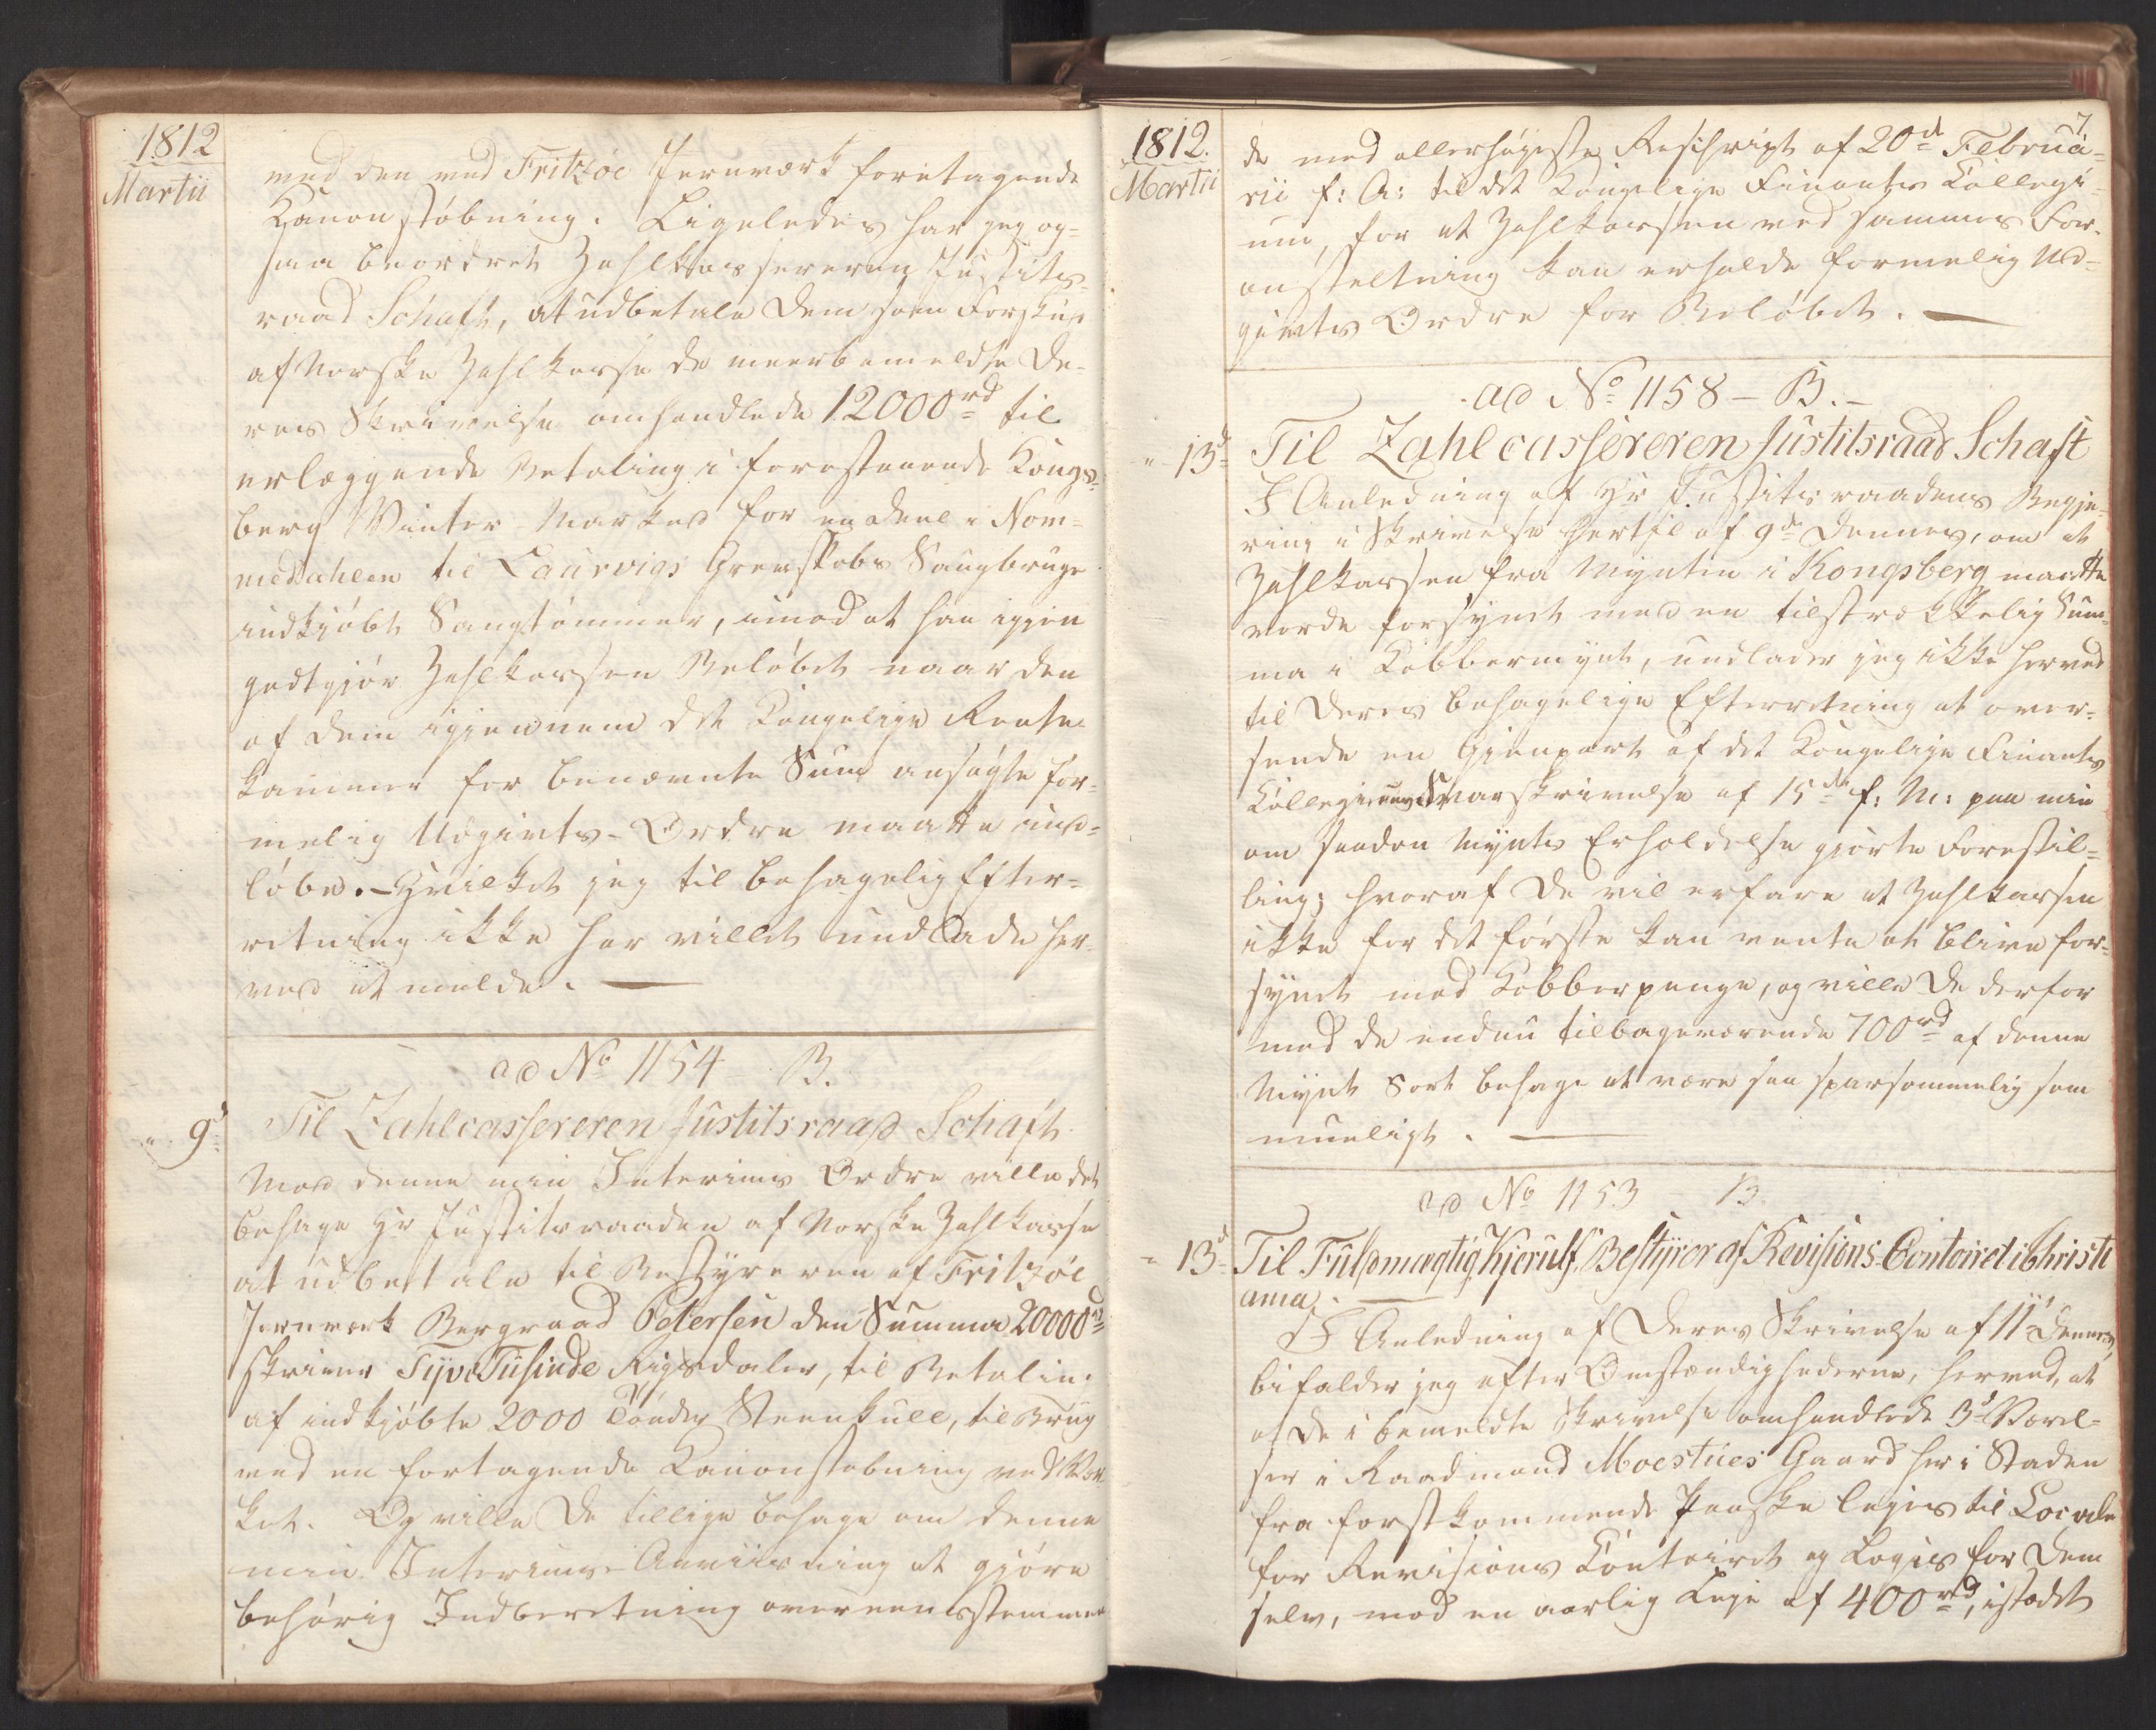 1812
Martii
med den ved Fritzöe Jernværk foretagende
Kanonstöbning. Ligeledes har jeg og-
saa beordret Zahlkassereren Justits-
raad Schaft, at udbetale Dem som Forskud
af Norske Zahlkasse de meerbemeldte De-
res Skrivelse omhandlede 12000rd til
erlæggende Betaling i forestaaende Kongs-
berg Winter-Marked for en deel i Nom-
medahlen til Laurvigs Grevskabs Saugbruge
indkjöbt Saugtömmer, imod at han igjen
godtgjör Zahlkassen Belöbet naar den
af Dem igjennem det Kongelige Rente-
kammer for benævnte Sum ansögte for-
melig Udgivts-Ordre maatte ind-
löbe. - Hvilket jeg til behagelig Efter-
retning ikke har villet undlade her-
ved at melde. —
ad No 1154 B.
" 9d
Til Zahlcassereren Justitsraad Schaft
Mod denne min Interims Ordre ville det
behage Hr Justitsraaden af Norske Zahlkasse
at udbetale til Bestyreren af Fritzöe
Jernværk Bergraad Petersen den Summa 20000rd
skriver Tyve Tusinde Rigsdaler, til Betaling
af indkjöbte 2000 Tönder Steenkull, til Brug
ved en foretagende Kanonstöbning ved Vær-
ket. Og ville De tillige behage om denne
min Interims-Anviisning at gjöre
behörig Indberetning overeensstemmen-
7
1812.
Martii
de med allerhöjeste Rescript af 20d Februa-
rii f: A: til det Kongelige Finants Collegi-
um, for at Zahlkassen ved sammes For-
anstaltning kan erholde formelig Ud-
givts Ordre for Belöbet. —
ad No 1158 - B. -
" 13d
Til Zahlcassereren Justitsraad Schaft
I Anledning af Hr Justitsraadens Begje-
ring i Skrivelse hertil af 9d dennes, om at
Zahlkassen fra Mynten i Kongsberg maatte
vorde forsynet med en tilstrækkelig Sum-
ma i Kobbermynt, undlader jeg ikke herved
til Deres behagelige Efterretning at over-
sende en Gjenpart af det Kongelige Finants
Collegiums Svarskrivelse af 15de f: M: paa min
om saadan Mynts Erholdelse gjorte Forestil-
ling; hvoraf De vil erfare at Zahlkassen
ikke for det förste kan vente at blive for-
synet med Kobberpenge, og ville De derfor
med de endnu tilbageværende 700rd af denne
Mynt Sort behage at være saa sparsommelig som
mueligt. —
ad No 1153 B
" 13d
Til Fuldmægtig Kjerulf, Bestyrer af Revisions-Contoiret i Christi
ania. —
I Anledning af Deres Skrivelse af 11d dennes,
bifalder jeg efter Omstændighederne, herved, at
af de i bemeldte Skrivelse omhandlede 3d Værel-
ser i Raadmand Moestües Gaard her i Staden
fra förstkommende Paaske lejes til Locale
for Revisions Contoiret og Logis for Dem
selv, mod en aarlig Leje af 400rd, istædet